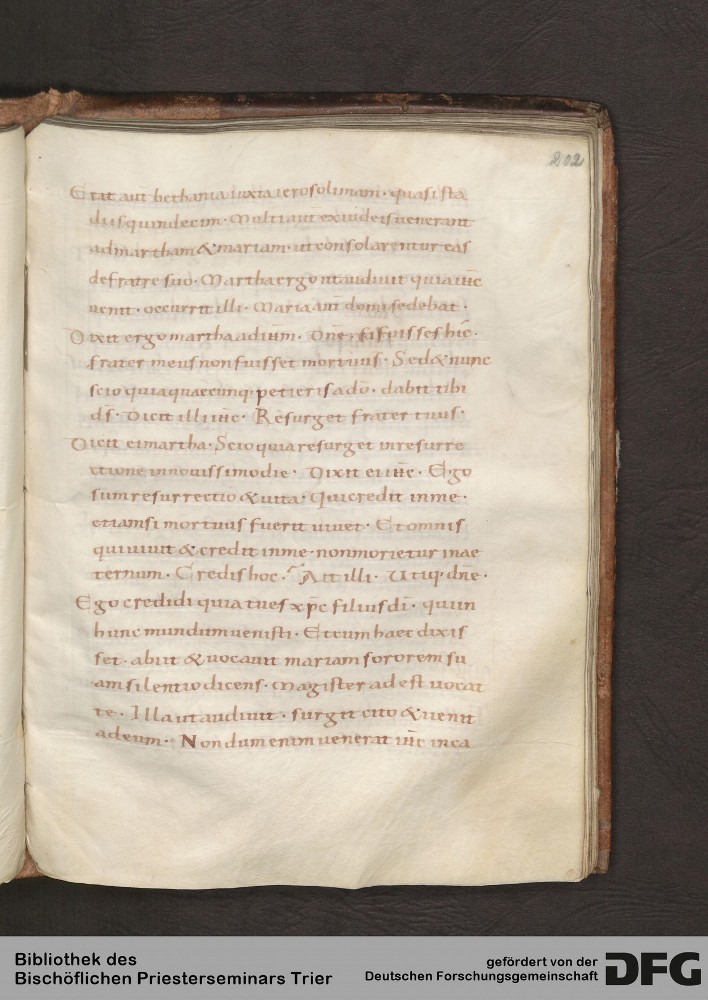 202
Erat aut bethania iuxta ierosolimam · quasi sta
diis quindecim · Multi aut ex iudeis uenerant
ad martham & mariam · ut consolarentur eas
de fratre suo · Martha ergo ut audiuit quia ihc
uenit · occurrit illi · Maria aut domi sedebat ·
Dixit ergo martha ad ihm · Dne, si fuisses hic ·
frater meus non fuisset mortuus · Sed & nunc
scio quia quaecunq; petieris a do · dabit tibi
ds · Dicit illi ihc · Resurget frater tuus ·
Dicit ei martha · Scio quia resurget in resurre
ctione in nouissimo die · Dixit ei ihc · Ego
sum resurrectio & uita · Qui credit in me ·
etiam si mortuus fuerit uiuet · Et omnis
qui uiuit & credit in me · non morietur in ae
ternum · Credis hoc · Ait illi · Utiq; dne ·
Ego credidi quia tu es xpc filius di · qui in
hunc mundum uenisti · Et cum haec dixis
set · abiit & uocauit mariam sororem su
am silentio dicens · Magister adest uocat
te · Illa ut audiuit · surgit cito & uenit
ad eum · Nondum enim uenerat ihc in ca
Bibliothek des
Bischöflichen Priesterseminars Trier
gefördert von der
Deutschen Forschungsgemeinschaft
DFG